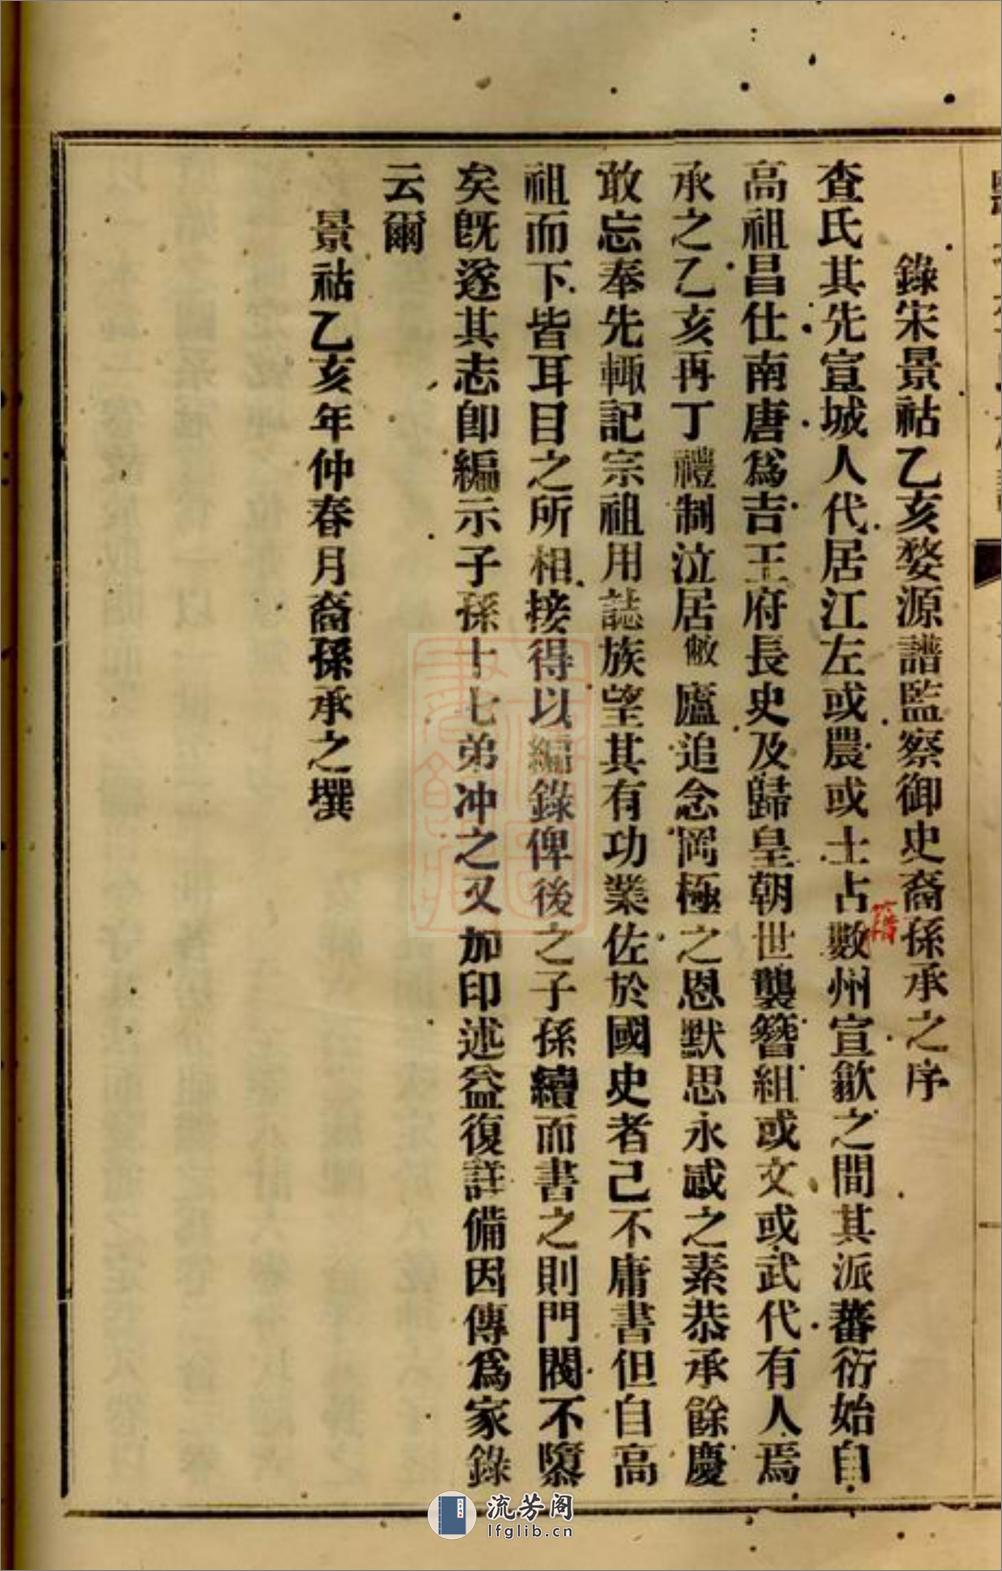 錄宋景祜乙亥婺源譜監察御史裔孫承之序
查氏其先宣城人代居江左或農或士占數州宣歙之間其派蕃衍始自
籍
高祖昌仕南唐爲吉王府長史及歸皇朝世襲簪組或文或武代有人焉
承之乙亥再丁禮制泣居敝廬追念罔極之恩默思永感之素恭承餘慶
敢忘奉先輙記宗祖用誌族望其有功業佐於國史者己不庸書但自高
祖而下皆耳目之所相接得以編錄俾後之子孫續而書之則門閥不隳
矣旣遂其志卽編示子孫十七弟冲之又加印述益復詳備因傳爲家錄
云爾
景祜乙亥年仲春月裔孫承之撰
流芳阁
lfglib.cn